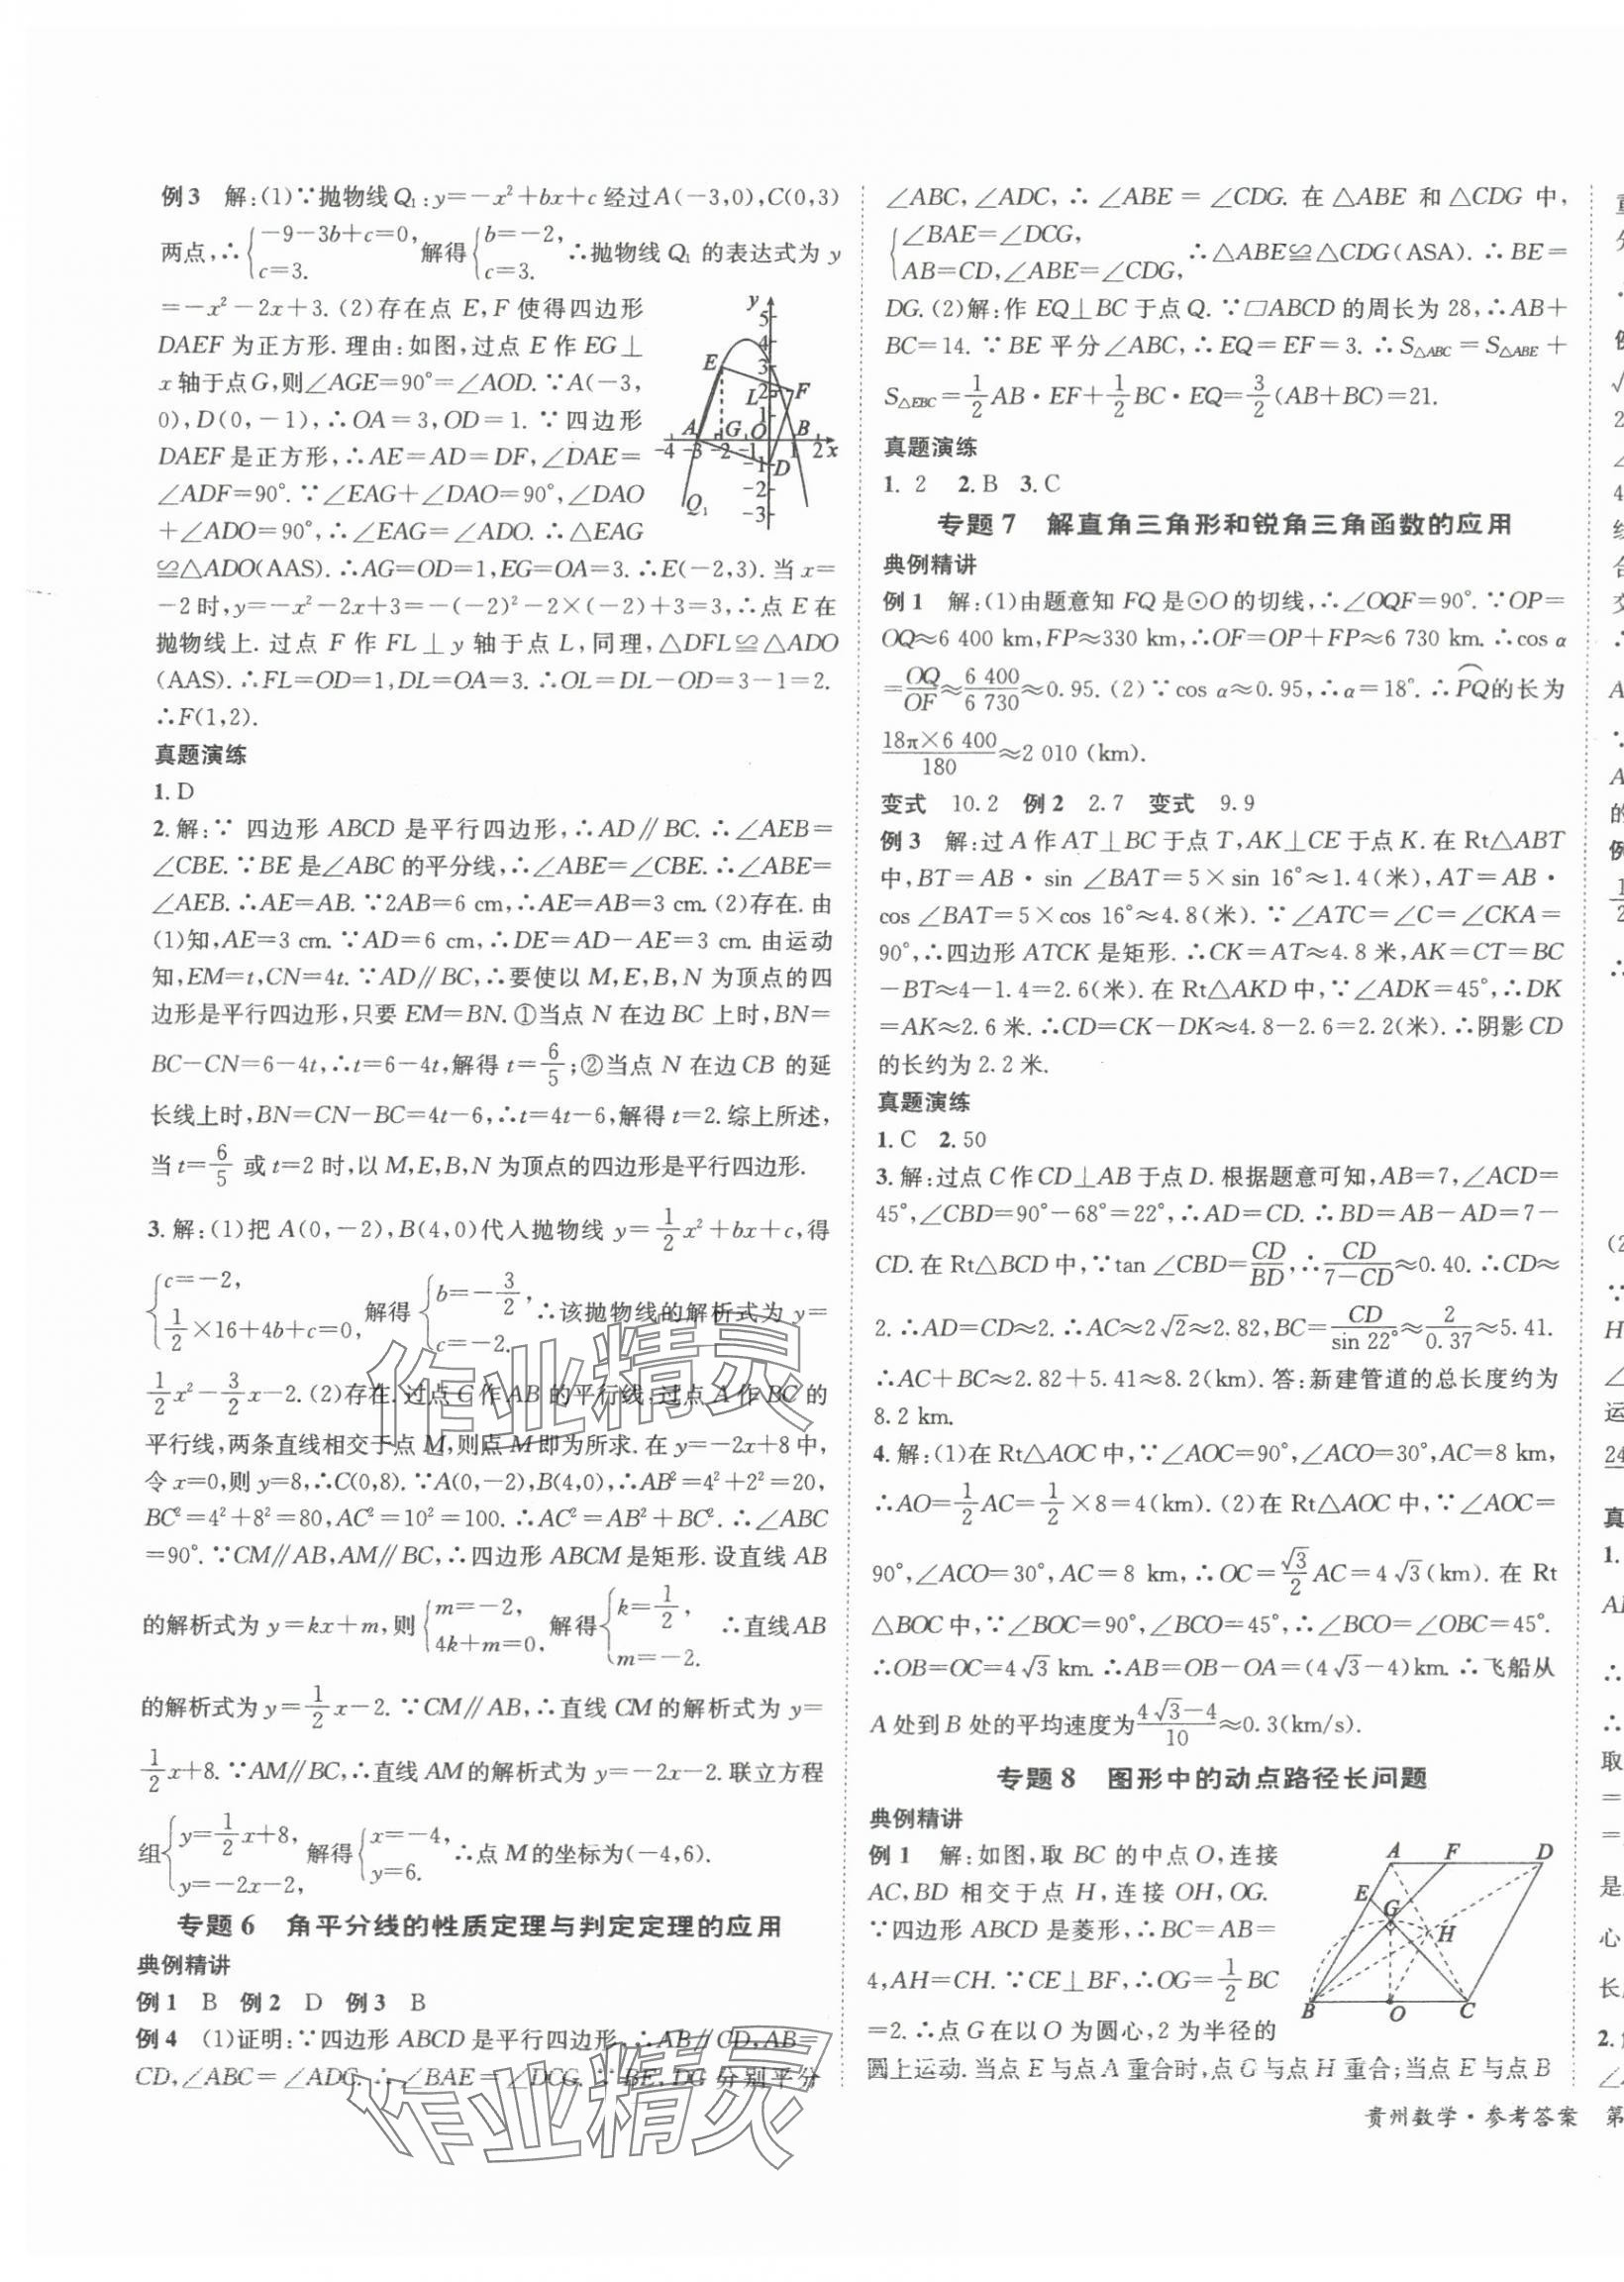 例3　解:(1)∵抛物线Q₁:y=-x²+bx+c经过A(-3,0),C(0,3)
两点,∴{-9-3b+c=0, c=3. 解得{b=-2, c=3. ∴抛物线Q₁的表达式为y
=-x²-2x+3. (2)存在点E,F使得四边形
DAEF为正方形.理由:如图,过点E作EG⊥
x轴于点G,则∠AGE=90°=∠AOD.∵A(-3,
0),D(0,-1),∴OA=3,OD=1.∵四边形
DAEF是正方形,∴AE=AD=DF,∠DAE=
∠ADF=90°.∵∠EAG+∠DAO=90°,∠DAO
+∠ADO=90°,∴∠EAG=∠ADO.∴△EAG
≌△ADO(AAS).∴AG=OD=1,EG=OA=3.∴E(-2,3).当x=
-2时,y=-x²-2x+3=-(-2)²-2×(-2)+3=3,∴点E在
抛物线上.过点F作FL⊥y轴于点L,同理,△DFL≌△ADO
(AAS).∴FL=OD=1,DL=OA=3.∴OL=DL-OD=3-1=2.
∴F(1,2).
y
5
4
E
3
2
F
L
1
A
G
O
B
-4
-3
-2
-1
1
2
x
-1
D
-2
Q₁
-3
真题演练
1. D
2.解:∵四边形ABCD是平行四边形,∴AD∥BC.∴∠AEB=
∠CBE.∵BE是∠ABC的平分线,∴∠ABE=∠CBE.∴∠ABE=
∠AEB.∴AE=AB.∵2AB=6 cm,∴AE=AB=3 cm. (2)存在.由
(1)知,AE=3 cm.∵AD=6 cm,∴DE=AD-AE=3 cm.由运动
知,EM=t,CN=4t.∵AD∥BC,∴要使以M,E,B,N为顶点的四
边形是平行四边形,只要EM=BN.①当点N在边BC上时,BN=
BC-CN=6-4t,∴t=6-4t,解得t=6/5;②当点N在边CB的延
长线上时,BN=CN-BC=4t-6,∴t=4t-6,解得t=2.综上所述,
当t=6/5或t=2时,以M,E,B,N为顶点的四边形是平行四边形.
3.解:(1)把A(0,-2),B(4,0)代入抛物线y=1/2x²+bx+c,得
{c=-2, 1/2×16+4b+c=0, 解得{b=-3/2, c=-2. ∴该抛物线的解析式为y=
1/2x²-3/2x-2. (2)存在.过点C作AB的平行线,过点A作BC的
平行线,两条直线相交于点M,则点M即为所求.在y=-2x+8中,
令x=0,则y=8,∴C(0,8).∵A(0,-2),B(4,0),∴AB²=4²+2²=20,
BC²=4²+8²=80,AC²=10²=100.∴AC²=AB²+BC².∴∠ABC
=90°.∵CM∥AB,AM∥BC,∴四边形ABCM是矩形.设直线AB
的解析式为y=kx+m,则{m=-2, 4k+m=0, 解得{k=1/2, m=-2. ∴直线AB
的解析式为y=1/2x-2.∵CM∥AB,∴直线CM的解析式为y=
1/2x+8.∵AM∥BC,∴直线AM的解析式为y=-2x-2.联立方程
组{y=1/2x+8, y=-2x-2, 解得{x=-4, y=6. ∴点M的坐标为(-4,6).
专题6　角平分线的性质定理与判定定理的应用
典例精讲
例1　B　例2　D　例3　B
例4　(1)证明:∵四边形ABCD是平行四边形,∴AB∥CD,AB=
CD,∠ABC=∠ADC.∴∠BAE=∠DCG.∵BE,DG分别平分
∠ABC,∠ADC,∴∠ABE=∠CDG.在△ABE和△CDG中,
{∠BAE=∠DCG, AB=CD,∠ABE=∠CDG, ∴△ABE≌△CDG(ASA).∴BE=
DG. (2)解:作EQ⊥BC于点Q.∵▱ABCD的周长为28,∴AB+
BC=14.∵BE平分∠ABC,∴EQ=EF=3.∴S△ABC=S△ABE+
S△EBC=1/2AB·EF+1/2BC·EQ=3/2(AB+BC)=21.
真题演练
1. 2　2. B　3. C
专题7　解直角三角形和锐角三角函数的应用
典例精讲
例1　解:(1)由题意知FQ是⊙O的切线,∴∠OQF=90°.∵OP=
OQ≈6 400 km,FP≈330 km,∴OF=OP+FP≈6 730 km.∴cos α
=OQ/OF≈6 400/6 730≈0.95. (2)∵cos α≈0.95,∴α=18°.∴⌒PQ的长为
18π×6 400/180≈2 010 (km).
变式　10.2　例2　2.7　变式　9.9
例3　解:过A作AT⊥BC于点T,AK⊥CE于点K.在Rt△ABT
中,BT=AB·sin∠BAT=5×sin 16°≈1.4(米),AT=AB·
cos∠BAT=5×cos 16°≈4.8(米).∵∠ATC=∠C=∠CKA=
90°,∴四边形ATCK是矩形.∴CK=AT≈4.8米,AK=CT=BC
-BT≈4-1.4=2.6(米).在Rt△AKD中,∵∠ADK=45°,∴DK
=AK≈2.6米.∴CD=CK-DK≈4.8-2.6=2.2(米).∴阴影CD
的长约为2.2米.
真题演练
1. C　2. 50
3.解:过点C作CD⊥AB于点D.根据题意可知,AB=7,∠ACD=
45°,∠CBD=90°-68°=22°,∴AD=CD.∴BD=AB-AD=7-
CD.在Rt△BCD中,∵tan∠CBD=CD/BD,∴CD/(7-CD)≈0.40.∴CD≈
2.∴AD=CD≈2.∴AC≈2√2≈2.82,BC=CD/sin 22°≈2/0.37≈5.41.
∴AC+BC≈2.82+5.41≈8.2(km).答:新建管道的总长度约为
8.2 km.
4.解:(1)在Rt△AOC中,∵∠AOC=90°,∠ACO=30°,AC=8 km,
∴AO=1/2AC=1/2×8=4(km). (2)在Rt△AOC中,∵∠AOC=
90°,∠ACO=30°,AC=8 km,∴OC=√3/2AC=4√3(km).在Rt
△BOC中,∵∠BOC=90°,∠BCO=45°,∴∠BCO=∠OBC=45°.
∴OB=OC=4√3 km.∴AB=OB-OA=(4√3-4)km.∴飞船从
A处到B处的平均速度为(4√3-4)/10≈0.3(km/s).
专题8　图形中的动点路径长问题
典例精讲
例1　解:如图,取BC的中点O,连接
AC,BD相交于点H,连接OH,OG.
∵四边形ABCD是菱形,∴BC=AB=
4,AH=CH.∵CE⊥BF,∴OG=1/2BC
=2.∴点G在以O为圆心,2为半径的
圆上运动.当点E与点A重合时,点G与点H重合;当点E与点B
A
F
D
E
G
H
B
O
C
贵州数学·参考答案　第
作业精灵
作业精灵